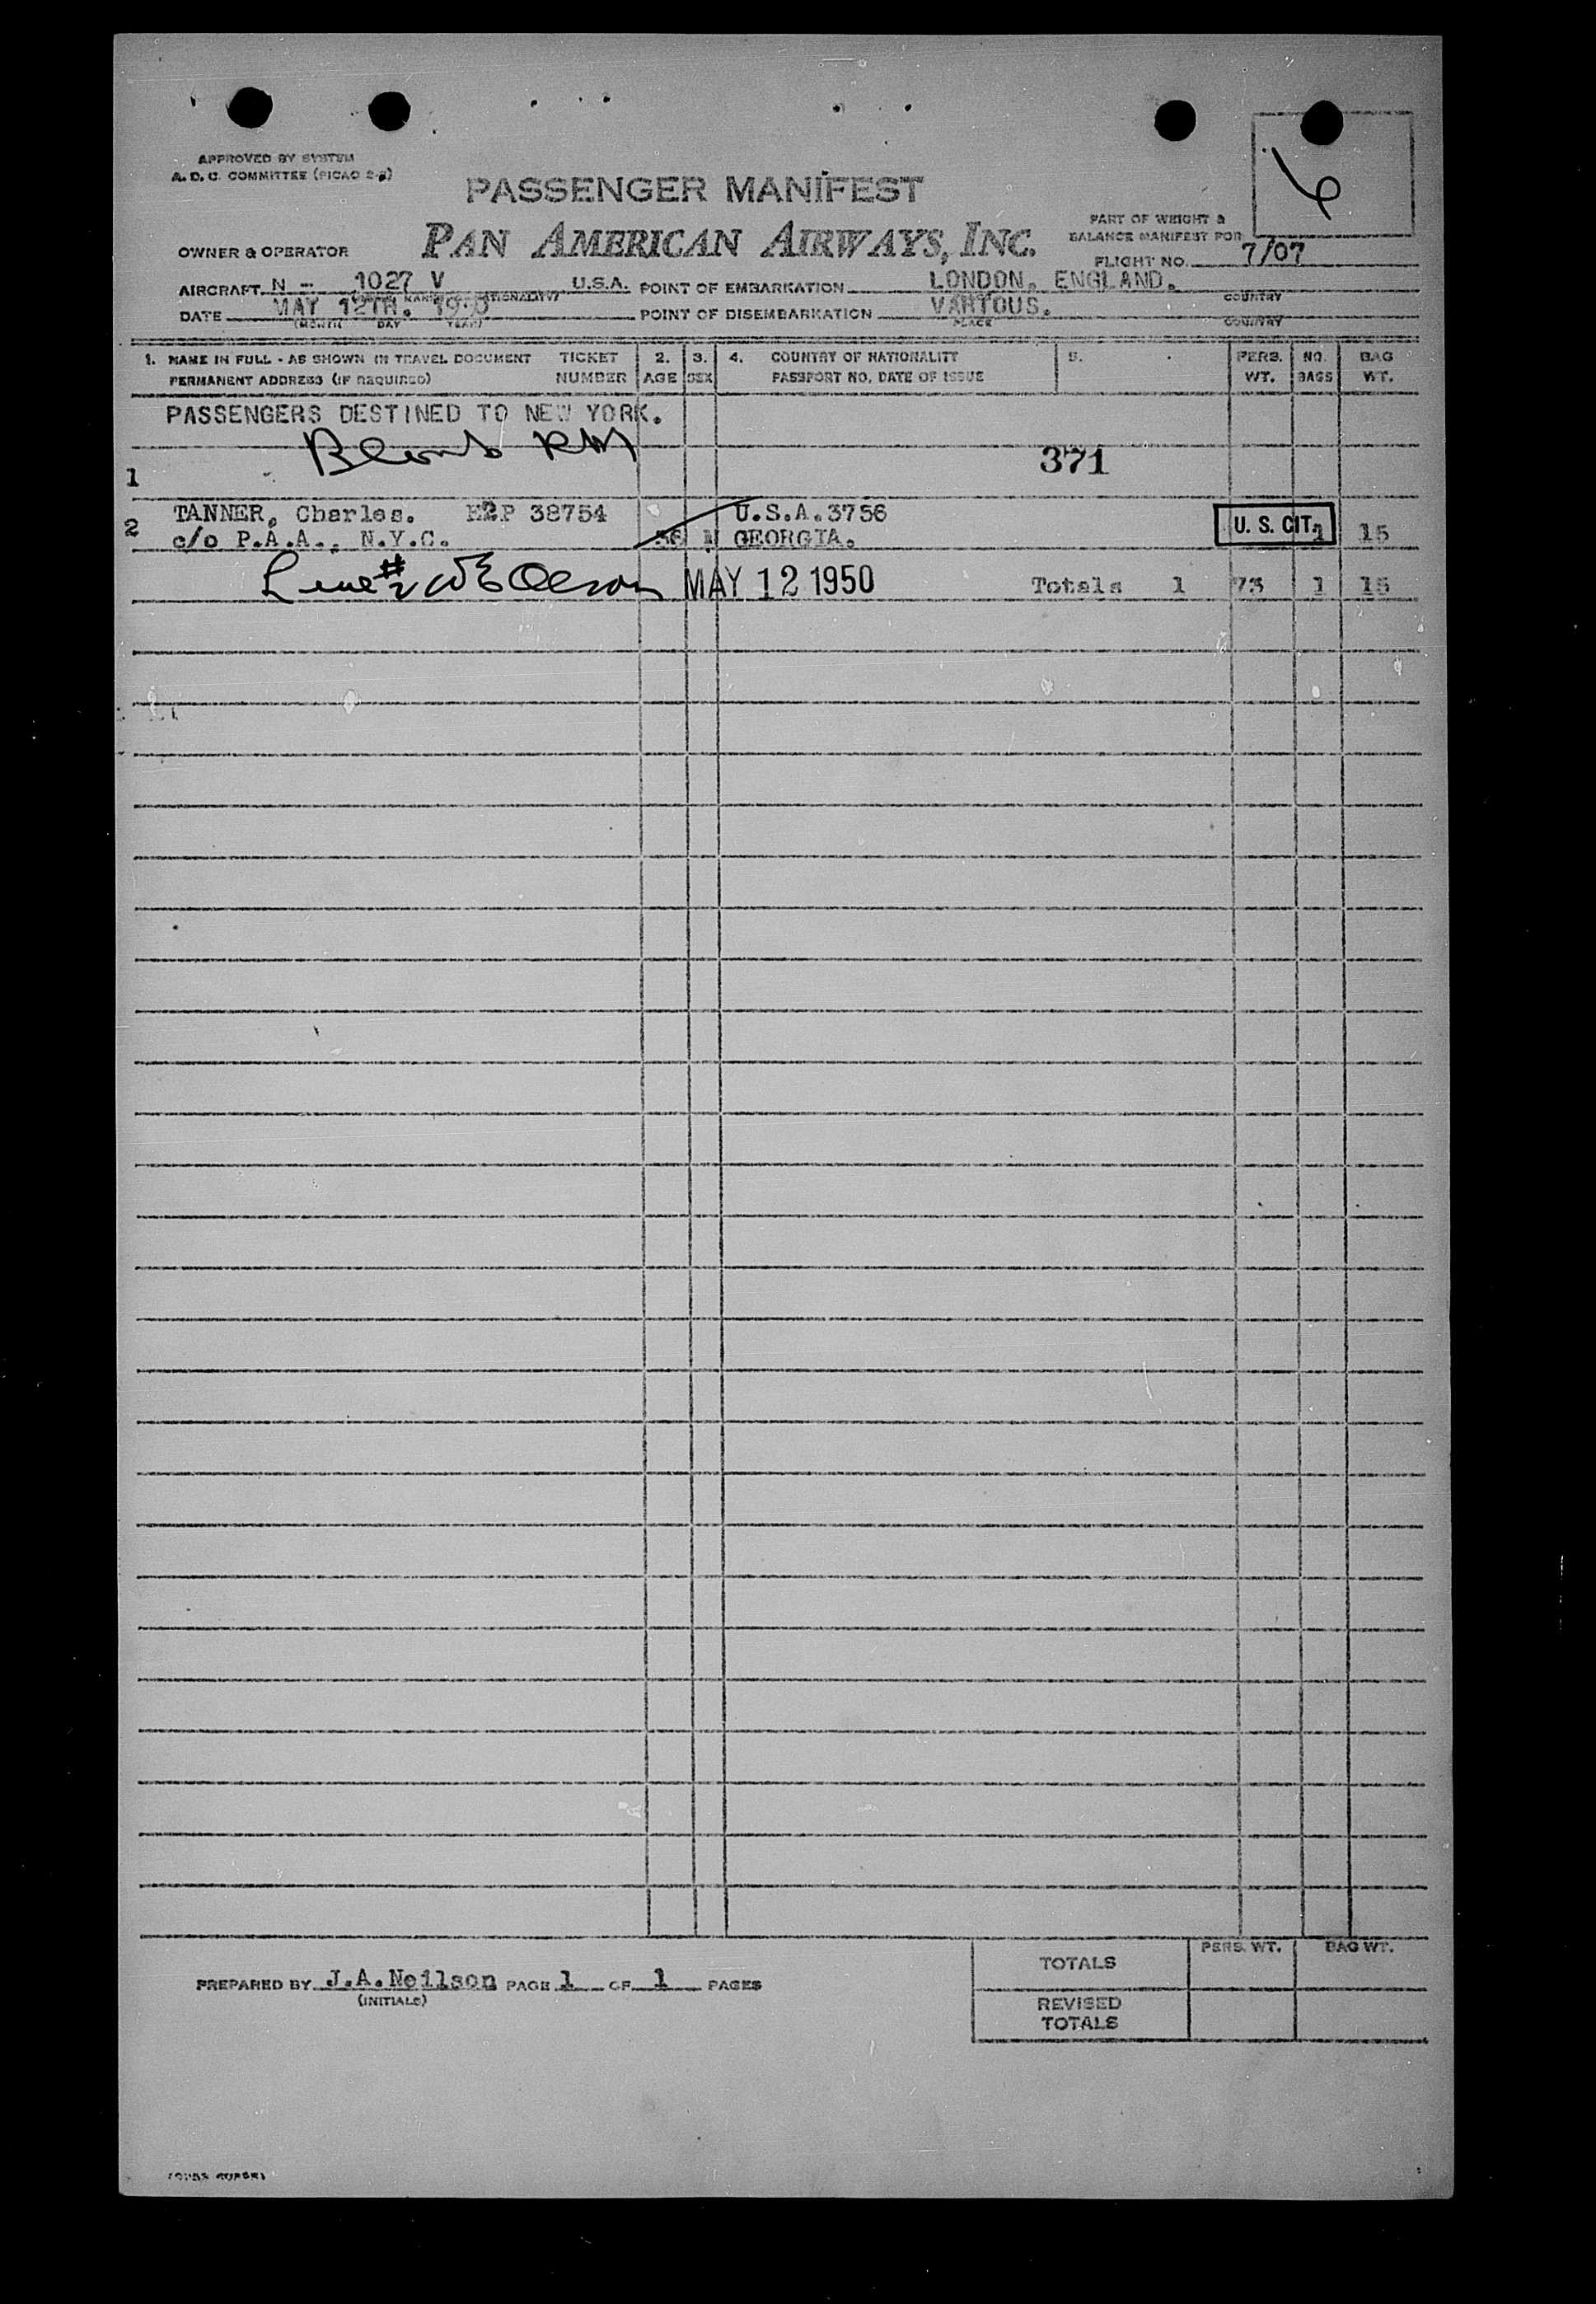 APPROVED BY SYSTEM
A.D.C. COMMITTEE (PICAO 2-3)
PASSENGER MANIFEST
PAN AMERICAN AIRWAYS, INC.
6
PART OF WEIGHT &
BALANCE MANIFEST FOR
OWNER & OPERATOR
FLIGHT NO. 7/07
AIRCRAFT N - 1027 V U.S.A. POINT OF EMBARKATION LONDON, ENGLAND.
COUNTRY
DATE MAY 12TH. 1950 POINT OF DISEMBARKATION VARIOUS.
(MONTH DAY YEAR) PLACE COUNTRY
1. NAME IN FULL - AS SHOWN IN TRAVEL DOCUMENT TICKET 2. 3. 4. COUNTRY OF NATIONALITY 5. PERS. NO. BAG
PERMANENT ADDRESS (IF REQUIRED) NUMBER AGE SEX PASSPORT NO, DATE OF ISSUE WT. BAGS WT.
PASSENGERS DESTINED TO NEW YORK.
1 371
2 TANNER, Charles. 38754 U.S.A. 3756 U. S. CIT. 1 15
c/o P.A.A., N.Y.C. GEORGIA.
Line #2 W E Olson MAY 12 1950 Totals 1 73 1 15
PERS. WT. BAG WT.
TOTALS
PREPARED BY J.A.Neilson PAGE 1 OF 1 PAGES
(INITIALS)
REVISED
TOTALS